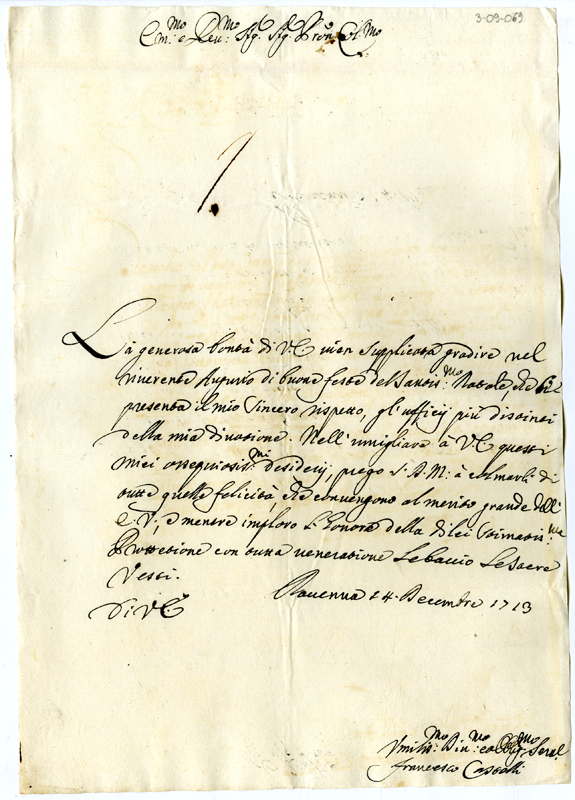 3-09-069
Em.mo e Reu.mo Sig.r Sig.r Pron Col.mo
La generosa bontà di V.E. uien supplicata gradire nel
riuerente Augurio di buone feste del Santis.mo Natale, che Gli
presenta il mio sincero rispetto, gl'ufficij più distinti
della mia diuozione. Nell'umigliare à V.E. questi
miei ossequiosis.mi desiderij, prego S.D.M. à colmarla di
tutte quelle felicità, che conuengono al merito grande dell'
E.V., e mentre imploro l'honore della dilei stimatis.ma
Protettione con tutta ueneratione Le baccio Le Sacre
Vesti.
Di V.E.
Rauenna 24. Decembre 1713
Vmilis.mo Diu.mo et Oblig.mo Seru.r
Francesco